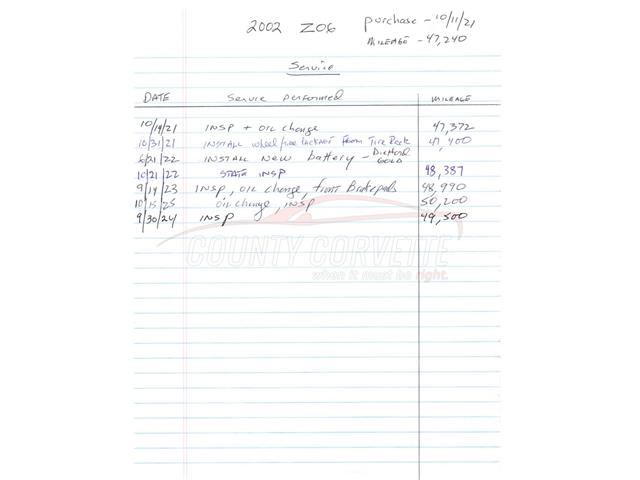 2002 Z06 purchase - 10/11/21
MILEAGE - 47,240
Service
DATE Service performed MILEAGE
10/19/21 INSP + OIL change 47,372
10/31/21 INSTALL wheel/tire package From Tire Rack 47,400
6/21/22 INSTALL New battery - Diehard GOLD
10/21/22 STATE INSP 48,387
9/19/23 INSP, OIL change, front Brake pads 48,990
10/15/25 oil change, INSP 50,200
9/30/24 INSP 49,500
COUNTY CORVETTE
when it must be right.